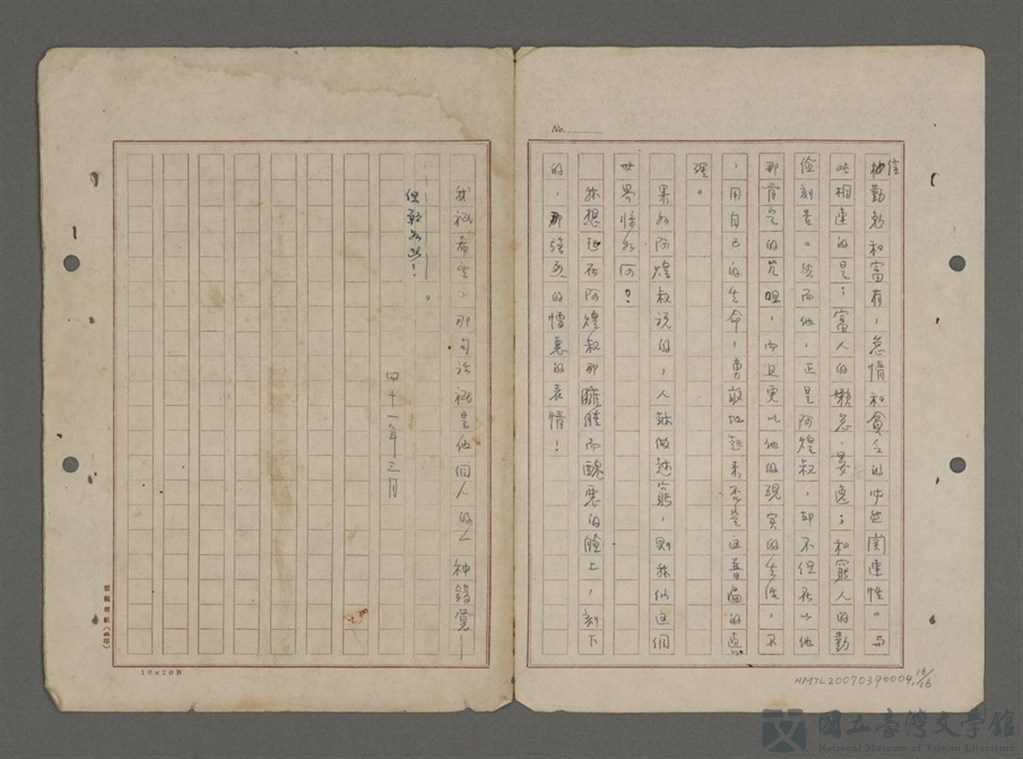 No.
信
勤勉和富有，怠惰和貧乏的必然関連性。与
此相連的是；富人的懶怠、晏逸；和窮人的勤
儉刻苦。然而他，正是阿煌叔，却不但在以他
那背定的咒咀，而且更以他的現實的生活，不
，用自己的生命，勇敢地起来否定這普遍的真
理。
果如阿煌叔说的，人越做越窮，則我们這個
世界情如何？
我想起在阿煌叔那臃腫而醜悪的臉上，刻下
的，那強烈的憎悪的表情！
我祗希望，那句話祗是他個人的一种錯覚—
——————。
但敢如此！
四十一年三月
10×20B
NMTL20070390004 16/16
國立臺灣文學館
National Museum of Taiwan Literature